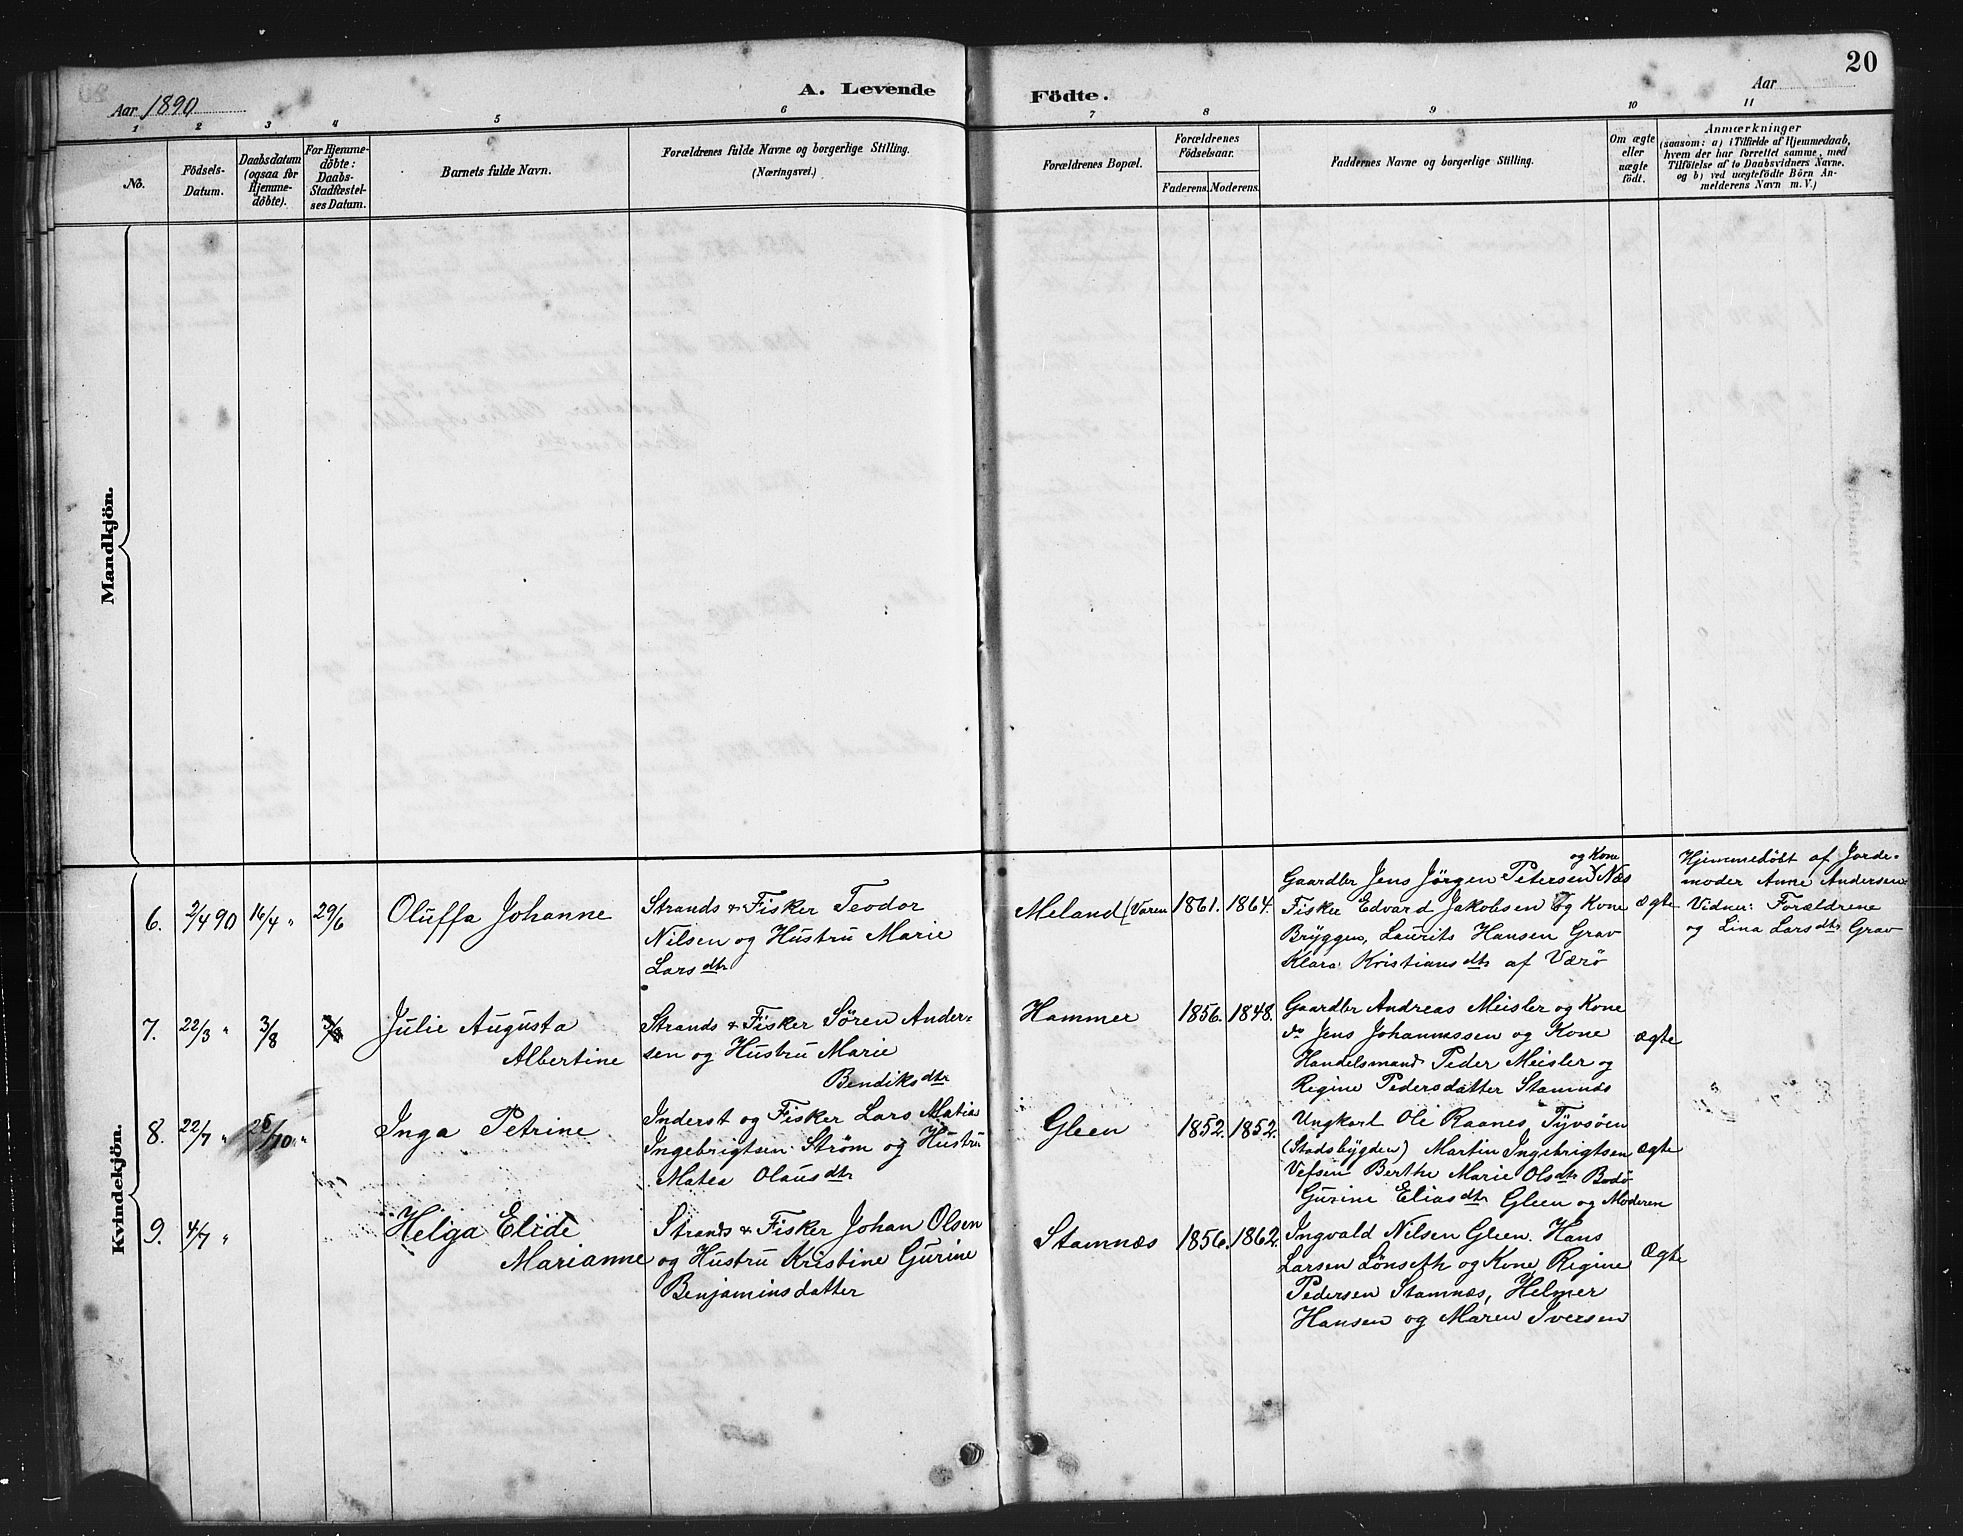 20
Aar 1890
A. Levende Födte.
Aar
1 2 3 4 5 6 7 8 9 10 11
No.
Födsels-
Datum.
Daabsdatum
(ogsaa for
Hjemme-
döbte).
For Hjemme-
döbte:
Daabs-
Stadfæstel-
ses Datum.
Barnets fulde Navn.
Forældrenes fulde Navne og borgerlige Stilling.
(Næringsvei.)
Forældrenes Bopæl.
Forældrenes
Födselsaar.
Faderens. Moderens.
Faddernes Navne og borgerlige Stilling.
Om ægte
eller
uægte
födt.
Anmærkninger
(saasom: a) i Tilfælde af Hjemmedaab,
hvem der har forrettet samme, med
Tilföielse af to Daabsvidners Navne,
og b) ved uægtefödte Börn An-
melderens Navn m.V.)
Mandkjön.
Kvindekjön.
6. 2/4 90 16/4 " 29/6
Oluffa Johanne
Strands & Fisker Teodor
Nilsen og Hustru Marie
Larsdtr
Meland (Væren
1861. 1864.
og Kone
Gaardbr Jens Jörgen Petersen Næs
Fisker Edvard Jakobsen og Kone
Bryggen, Laurits Hansen Grav
Klara Kristiansdtr af Værö
ægte
Hjemmedöbt af Jorde-
moder Anne Andersen
Vidner: Forældrene
og Lina Larsdtr Grav
7. 22/3 " 3/8
Julie Augusta
Albertine
Strands & Fisker Sören Ander-
sen og Hustru Marie
Bendiksdtr
Hammer
1856. 1848.
Gaardbr Andreas Meisler og Kone
do Jens Johannessen og Kone
Handelsmand Peder Meisler og
Regine Pedersdatter Stamnæs
ægte
8. 22/7 " 26/10 "
Inga Petrine
Inderst og Fisker Lars Matias
Ingebrigtsen Ström og Hustru
Matea Olausdtr
Gleen
1852. 1852.
Ungkarl Ole Raanes, Tyvsöen
(Stadsbygden) Martin Ingebrigtsen
Vefsen Berthe Marie Olsdtr Bodö
Gurine Eliasdtr Gleen og Moderen
ægte
9. 4/7 "
Helga Elide
Marianne
Strands & Fisker Johan Olsen
og Hustru Kristine Gurine
Benjaminsdatter
Stamnæs
1856. 1862.
Ingvald Nilsen Gleen. Hans
Larsen Lönseth og Kone, Regine
Pedersen Stamnæs, Helmer
Hansen og Maren Iversen
Ægte